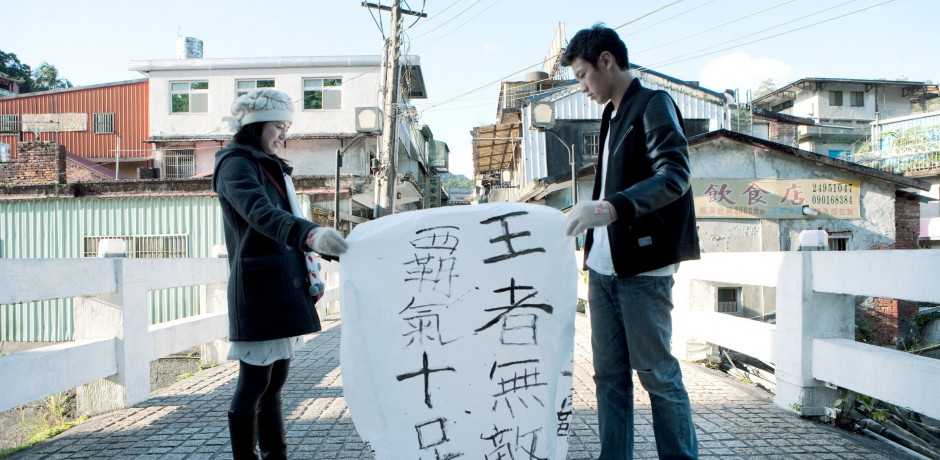 王者無敵
覇氣十足
飲食店
24951041
090168384